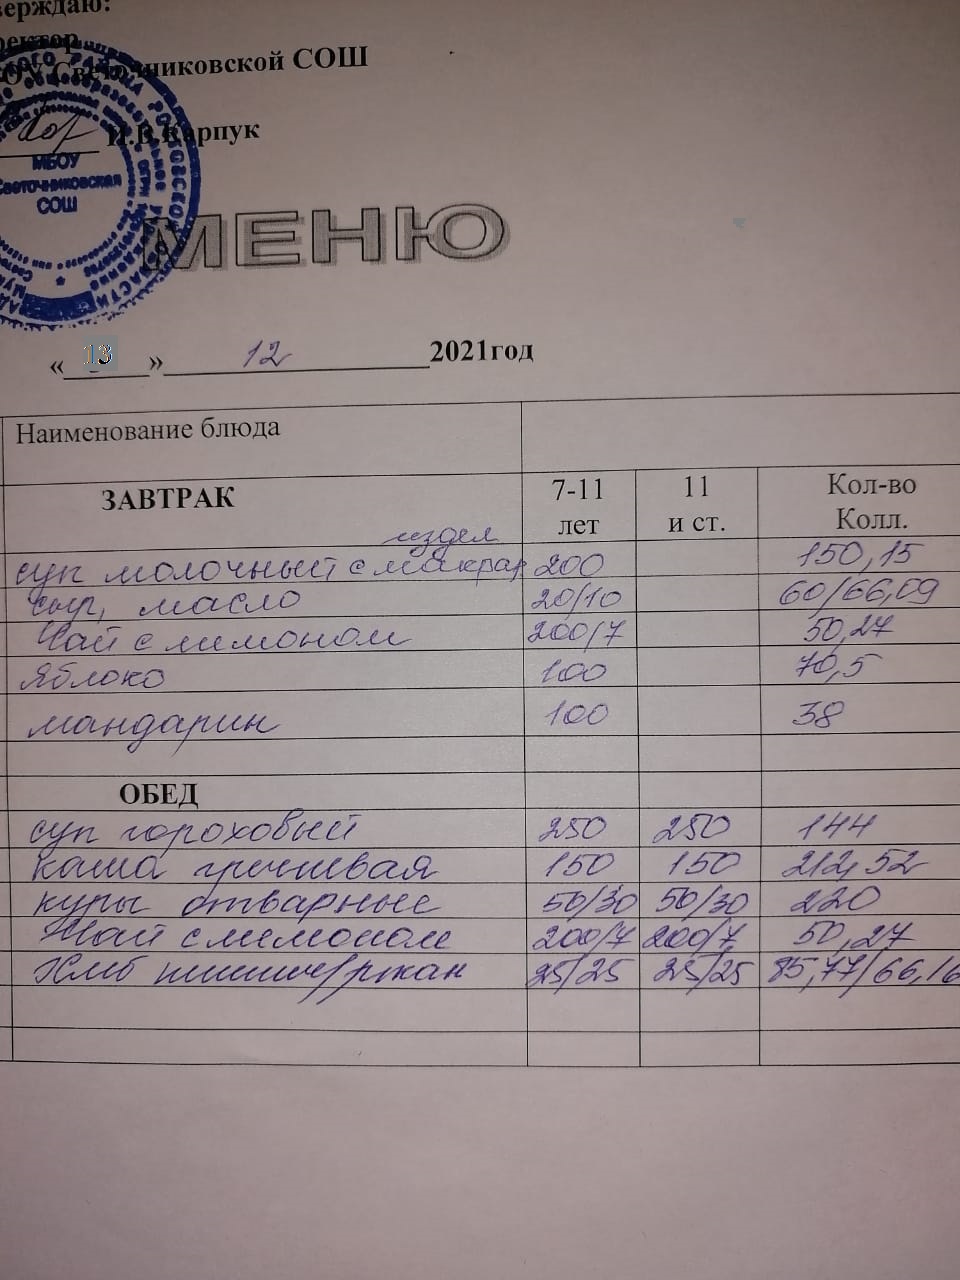 верждаю:
ректор
ОУ Светочниковской СОШ
И.В.Карпук
МБОУ
Светочниковская
СОШ
МЕНЮ
« 13 » 12 2021год
Наименование блюда
ЗАВТРАК 7-11 лет 11 и ст. Кол-во Колл.
издел
суп молочный с макрар 200 150,15
сыр, масло 20/10 60/66,09
Чай с лимоном 200/7 50,27
Яблоко 100 70,5
мандарин 100 38
ОБЕД
суп гороховый 250 250 144
каша гречневая 150 150 212,52
куры отварные 50/30 50/30 220
Чай с лимоном 200/7 200/7 50,27
Хлеб пшенич/ржан 25/25 25/25 85,77/66,16